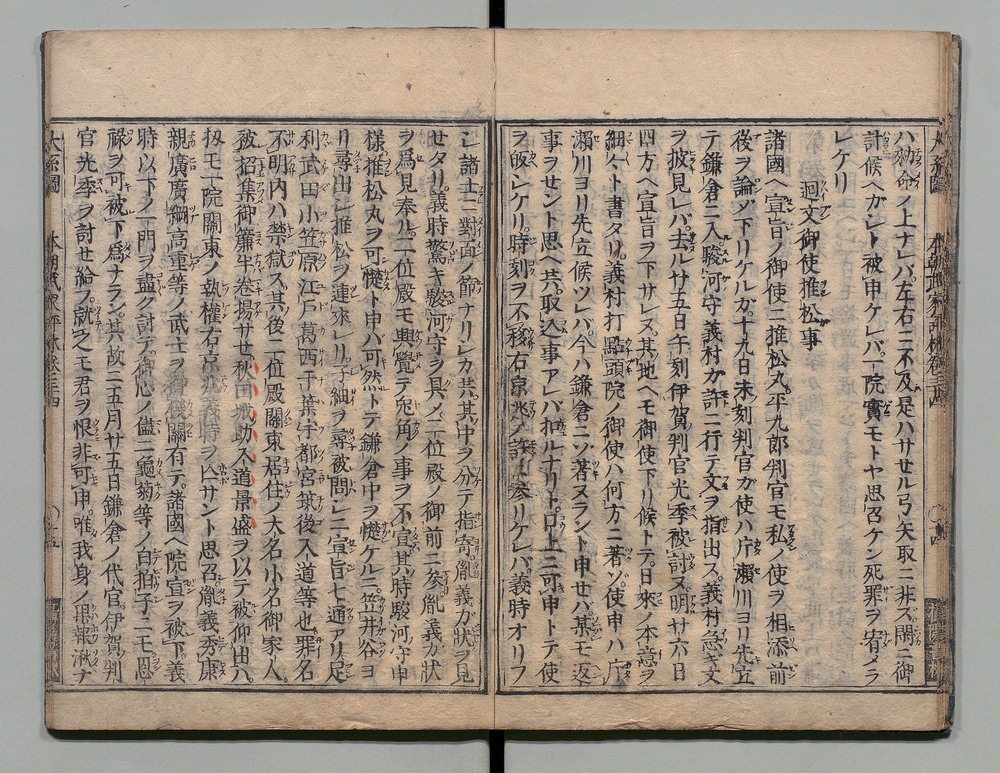 ハ勅命ノ上ナレバ左右ニ不及是ハサセル弓矢取ニ非ズ閑ニ御
計候ヘガシト被申ケレバ一院實モトヤ思召ケン死罪ヲ宥メラ
レケリ
廻文御使推松事
諸國ヘ宣旨ノ御使ニ推松丸平九郎判官モ私ノ使ヲ相添前
後ヲ論ゾ下リケルガ十九日未刻判官ガ使ハ片瀬川ヨリ先立
テ鎌倉ニ入駿河守義村ガ許ニ行テ文ヲ指出ス義村急ギ文
ヲ披見レバ去ル廿五日午刻伊賀判官光季被討ヌ明廿六日
四方ヘ宣旨ヲ下サレヌ其地ヘモ御使下リ候トテ日來ノ本意ヲ
細々ト書タリ義村打點頭院ノ御使ハ何方ニ著ゾ使申ハ片
瀬川ヨリ先立候ツレバ今ハ鎌倉ニゾ著ヌラント申セバ某モ返
事ヲセント思ヘ共取込事アレバ扣ルナリト口上ニ可申トテ使
ヲ皈シケリ時刻ヲ不移右京兆ノ許ニ參リケレバ義時オリフ
シ諸士ニ對面ノ節ナリシカ共其中ヲ分テ指寄胤義ガ狀ヲ見
セタリ義時驚キ駿河守ヲ具ノ二位殿ノ御前ニ參胤義ガ狀
ヲ爲見奉ル二位殿モ興覺テ兔角ノ事ヲ不宣其時駿河守申
樣推松丸ヲ可攙ト申バ可然トテ鎌倉中ヲ攙ケルニ笠井谷ヨ
リ尋出シ推松ヲ連來レリ子細ヲ尋被問シニ宣旨七通アリ足
利武田小笠原江戸葛西千葉宇都宮筑後入道等也罪名
不明内ハ禁獄ス其後二位殿關東居住ノ大名小名御家人
被招集御簾半卷揚サセ秋田城助入道景盛ヲ以テ被仰出ハ
扨モ一院關東ノ執權右京兆義時ヲ亡サント思召胤義秀康
親廣廣綱高重等ノ武士ヲ御後關有テ諸國ヘ院宣ヲ被下義
時以下ノ一門ヲ盡ク討テ御心ノ儘ニ龜菊等ノ白拍子ニモ恩
祿ヲ可被下爲ナラン其故ニ五月廿五日鎌倉ノ代官伊賀判
官光季ヲ討セ給フ就之モ君ヲ恨非可申唯我身ノ果報湫ナ